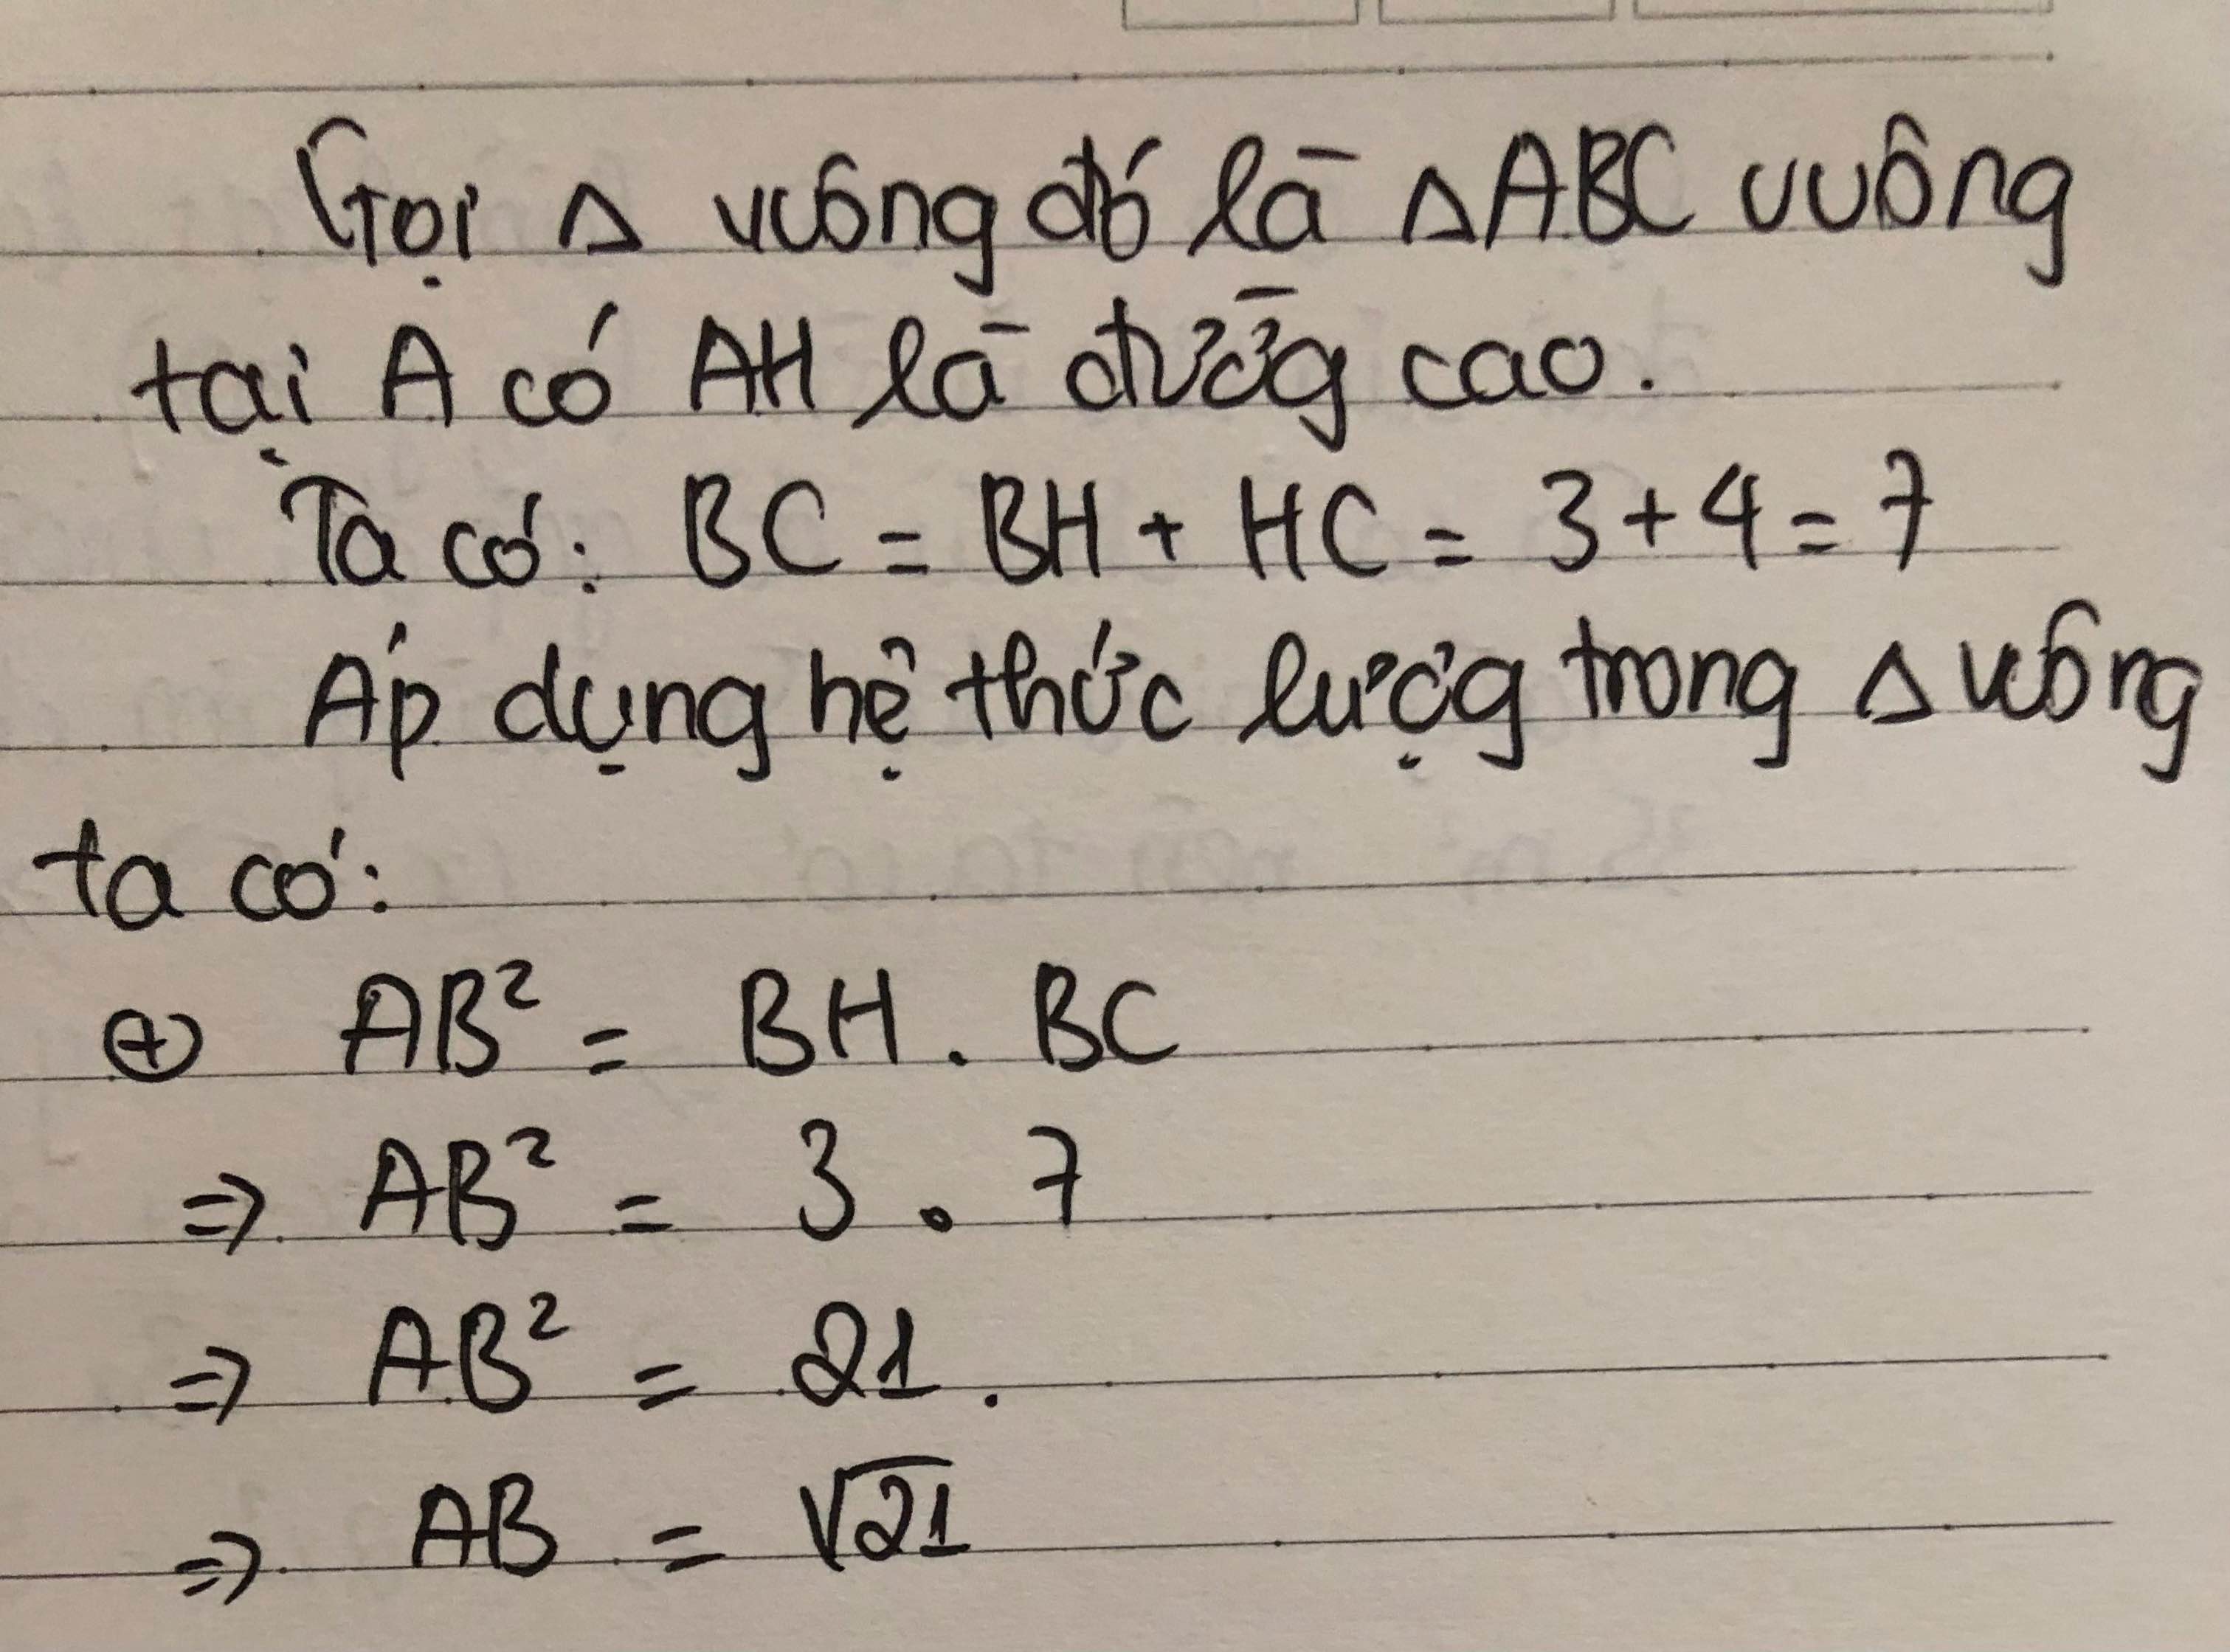 Gọi Δ vuông đó là ΔABC vuông
tại A có AH là đường cao.
Ta có: BC = BH + HC = 3 + 4 = 7
Áp dụng hệ thức lượng trong Δ vuông
ta có:
⊕ AB² = BH . BC
⇒ AB² = 3 . 7
⇒ AB² = 21.
⇒ AB = √21